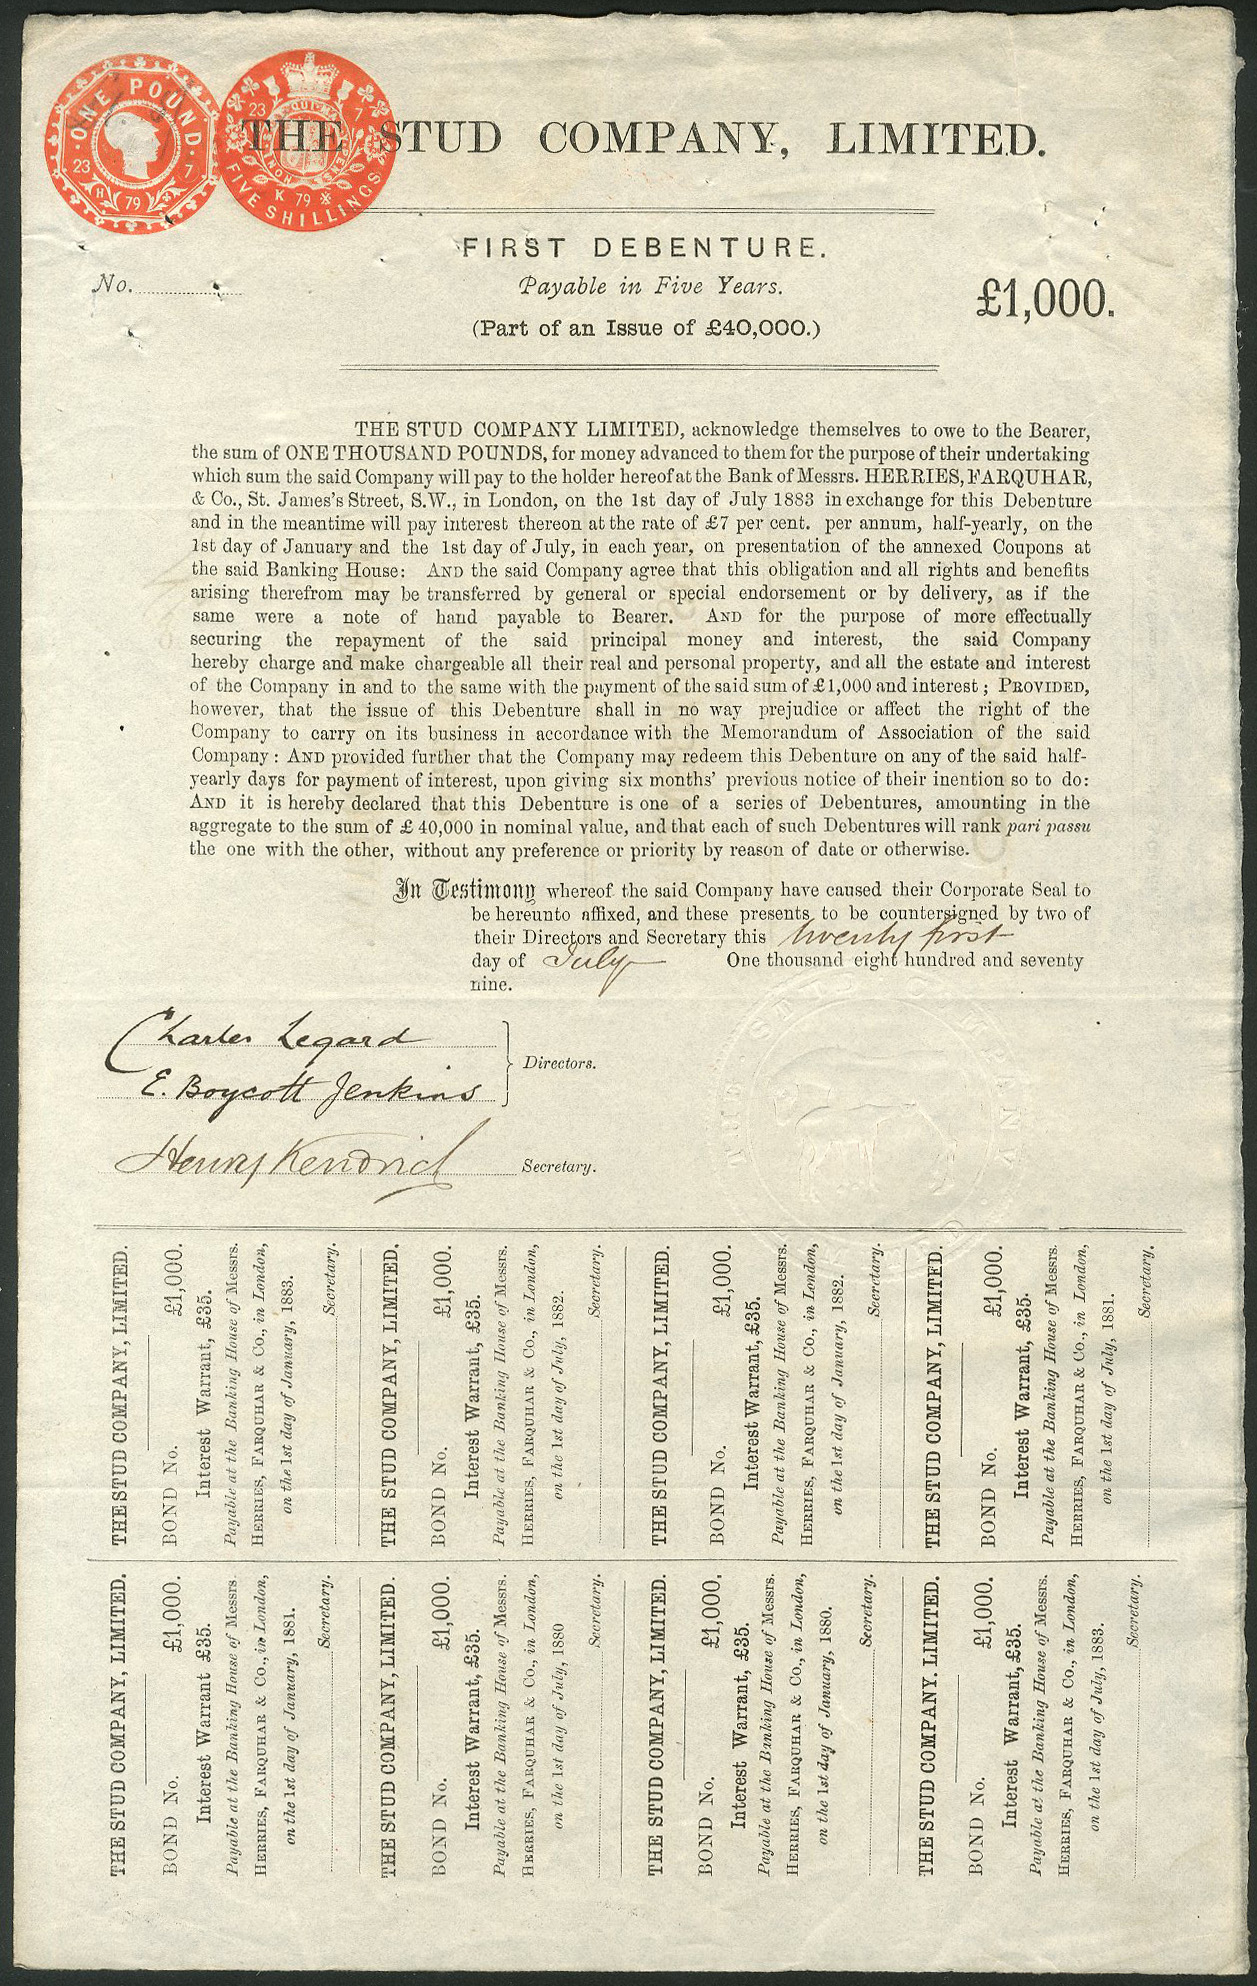 ONE POUND
23 7
H 79
23 7
QUI MAL
NON PENSE
K 79
FIVE SHILLINGS
THE STUD COMPANY, LIMITED.
FIRST DEBENTURE.
No.
Payable in Five Years.
£1,000.
(Part of an Issue of £40,000.)
THE STUD COMPANY LIMITED, acknowledge themselves to owe to the Bearer,
the sum of ONE THOUSAND POUNDS, for money advanced to them for the purpose of their undertaking
which sum the said Company will pay to the holder hereof at the Bank of Messrs. HERRIES, FARQUHAR,
& Co., St. James's Street, S.W., in London, on the 1st day of July 1883 in exchange for this Debenture
and in the meantime will pay interest thereon at the rate of £7 per cent. per annum, half-yearly, on the
1st day of January and the 1st day of July, in each year, on presentation of the annexed Coupons at
the said Banking House: AND the said Company agree that this obligation and all rights and benefits
arising therefrom may be transferred by general or special endorsement or by delivery, as if the
same were a note of hand payable to Bearer. AND for the purpose of more effectually
securing the repayment of the said principal money and interest, the said Company
hereby charge and make chargeable all their real and personal property, and all the estate and interest
of the Company in and to the same with the payment of the said sum of £1,000 and interest; PROVIDED,
however, that the issue of this Debenture shall in no way prejudice or affect the right of the
Company to carry on its business in accordance with the Memorandum of Association of the said
Company: AND provided further that the Company may redeem this Debenture on any of the said half-
yearly days for payment of interest, upon giving six months' previous notice of their inention so to do:
AND it is hereby declared that this Debenture is one of a series of Debentures, amounting in the
aggregate to the sum of £40,000 in nominal value, and that each of such Debentures will rank pari passu
the one with the other, without any preference or priority by reason of date or otherwise.
In Testimony whereof the said Company have caused their Corporate Seal to
be hereunto affixed, and these presents to be countersigned by two of
their Directors and Secretary this twenty first
day of July One thousand eight hundred and seventy
nine.
Charles Legard
E. Boycott Jenkins
Directors.
Henry Kendrick
Secretary.
THE STUD COMPANY, LIMITED.
BOND No. £1,000.
Interest Warrant, £35.
Payable at the Banking House of Messrs.
HERRIES, FARQUHAR & Co., in London,
on the 1st day of January, 1883.
Secretary.
THE STUD COMPANY, LIMITED.
BOND No. £1,000.
Interest Warrant, £35.
Payable at the Banking House of Messrs.
HERRIES, FARQUHAR & Co., in London,
on the 1st day of July, 1882.
Secretary.
THE STUD COMPANY, LIMITED.
BOND No. £1,000.
Interest Warrant, £35.
Payable at the Banking House of Messrs.
HERRIES, FARQUHAR & Co., in London,
on the 1st day of January, 1882.
Secretary.
THE STUD COMPANY, LIMITED.
BOND No. £1,000.
Interest Warrant, £35.
Payable at the Banking House of Messrs.
HERRIES, FARQUHAR & Co., in London,
on the 1st day of July, 1881.
Secretary.
THE STUD COMPANY, LIMITED.
BOND No. £1,000.
Interest Warrant £35.
Payable at the Banking House of Messrs.
HERRIES, FARQUHAR & Co., in London,
on the 1st day of January, 1881.
Secretary.
THE STUD COMPANY, LIMITED.
BOND No. £1,000.
Interest Warrant, £35.
Payable at the Banking House of Messrs.
HERRIES, FARQUHAR & Co., in London,
on the 1st day of July, 1880
Secretary.
THE STUD COMPANY, LIMITED.
BOND No. £1,000.
Interest Warrant, £35.
Payable at the Banking House of Messrs.
HERRIES, FARQUHAR & Co., in London,
on the 1st day of January, 1880.
Secretary.
THE STUD COMPANY. LIMITED.
BOND No. £1,000.
Interest Warrant, £35.
Payable at the Banking House of Messrs.
HERRIES, FARQUHAR & Co., in London,
on the 1st day of July, 1883.
Secretary.